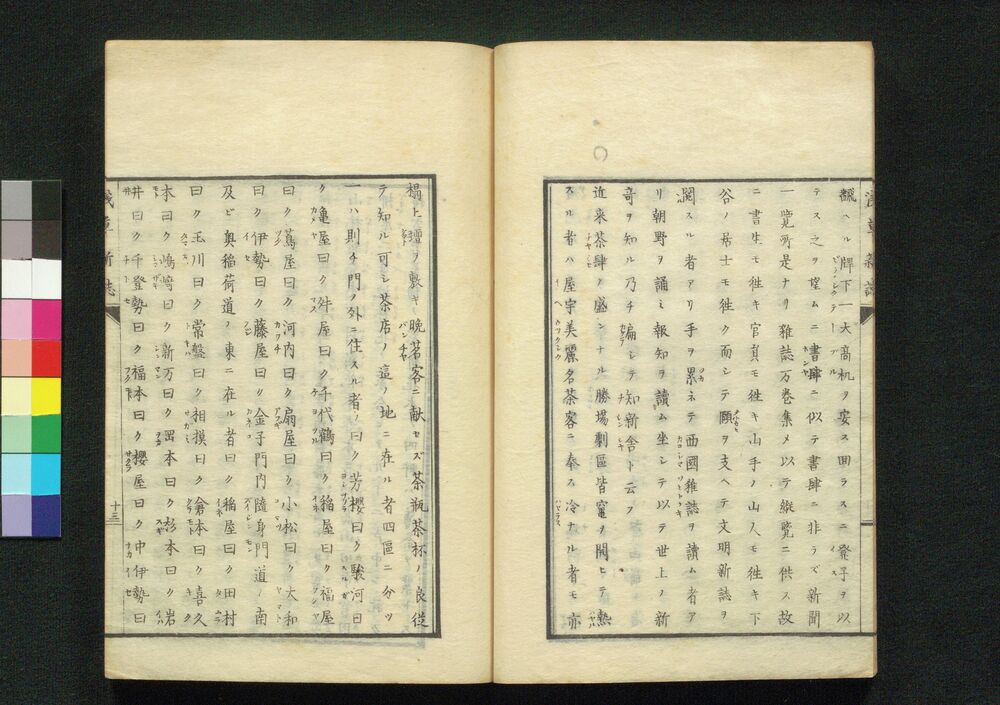 飜ヘル牌下一大高机ヲ安ス囲ラスニ凳子ヲ以
テス之ヲ望ムニ書肆ニ似テ書肆ニ非ラズ新聞
一覧所是ナリ雑誌万巻集メ以テ縦覧ニ供ス故
ニ書生モ徃キ官員モ徃キ山手ノ山人モ徃キ下
谷ノ居士モ徃ク而シテ頤ヲ支ヘテ文明新誌ヲ
閲スル者アリ手ヲ累ネテ西國雑誌ヲ讀ム者ア
リ朝野ヲ誦ミ報知ヲ讀ム坐シテ以テ世上ノ新
奇ヲ知ル乃チ扁シテ知新舎ト云フ
近来茶肆ノ盛ンナル勝場劇區皆竃ヲ開ヒテ𤍠
スル者ハ屋宇美麗名茶客ニ奉ス冷ナル者モ亦
榻上氊ヲ敷キ晩茗客ニ献セズ茶瓶茶杯ノ良從
テ知ル可シ茶店ノ這ノ地ニ在ル者四區ニ分ツ
一ハ則チ門ノ外ニ住スル者ノ曰ク芳櫻曰ク駿河曰
ク亀屋曰ク舛屋曰ク千代鶴曰ク稲屋曰ク福屋
曰ク蔦屋曰ク河内曰ク扇屋曰ク小松曰ク大和
曰ク伊勢曰ク藤屋曰ク金子門内隨身門道ノ南
及ビ奥稲荷道ノ東ニ在ル者曰ク稲屋曰ク田村
曰ク玉川曰ク常盤曰ク相摸曰ク倉本曰ク喜久
本曰ク嶋嵜曰ク新万曰ク岡本曰ク杉本曰ク岩
井曰ク千登勢曰ク福本曰ク櫻屋曰ク中伊勢曰
十三